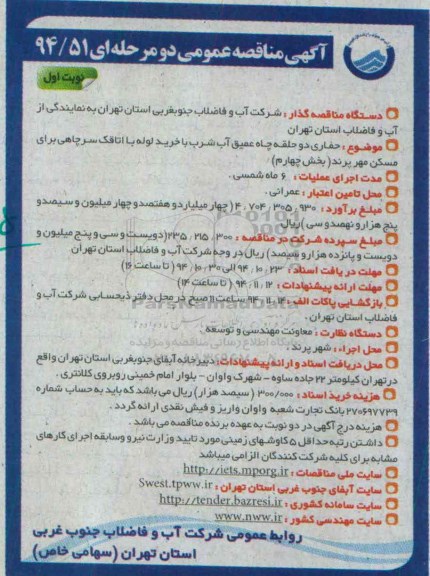 آگهی مناقصه عمومی دو مرحله ای ۹۴/۵۱
نوبت اول
دستگاه مناقصه گذار : شرکت آب و فاضلاب جنوبغربی استان تهران به نمایندگی از
آب و فاضلاب استان تهران
موضوع : حفاری دو حلقه چاه عمیق آب شرب با خرید لوله با اتاقک سرچاهی برای
مسکن مهر پرند( بخش چهارم)
مدت اجرای عملیات : ۶ ماه شمسی .
محل تامین اعتبار : عمرانی .
مبلغ برآورد : ۴٫۷۰۴٫۳۰۵٫۹۳۰ ( چهار میلیارد و هفتصدو چهار میلیون و سیصدو
پنج هزار و نهصدو سی )ریال
مبلغ سپرده شرکت در مناقصه : ۲۳۵٫۲۱۵٫۳۰۰( دویست و سی و پنج میلیون و
دویست و پانزده هزار و سیصد) ریال در وجه شرکت آب و فاضلاب استان تهران
مهلت دریافت اسناد : ۹۴/۱۰/۲۳ الی ۹۴/۱۰/۳۰ ( تا ساعت ۱۶)
مهلت ارائه پیشنهادات : ۹۴/۱۱/۱۲ ( تا ساعت ۱۴)
بازگشایی پاکات الف : ۹۴/۱۱/۱۴ ساعت ۱۱ صبح در محل دفتر ذیحسابی شرکت آب و
فاضلاب استان تهران .
دستگاه نظارت : معاونت مهندسی و توسعه .
محل اجراء : شهر پرند .
محل دریافت اسناد و ارائه پیشنهادات : دبیرخانه آبفای جنوبغربی استان تهران واقع
در تهران کیلومتر ۲۲ جاده ساوه - شهرک واوان - بلوار امام خمینی روبروی کلانتری .
هزینه خرید اسناد : ۳۰۰/۰۰۰ ( سیصد هزار ) ریال می باشد که باید به حساب شماره
۲۷۰۶۹۷۷۳۹ بانک تجارت شعبه واوان واریز و فیش نقدی ارائه گردد .
هزینه درج آگهی در دو نوبت به عهده برنده مناقصه می باشد .
داشتن رتبه حداقل ۵ کاوشهای زمینی مورد تایید وزارت نیرو وسابقه اجرای کارهای
مشابه برای کلیه شرکت کنندگان الزامی میباشد
سایت ملی مناقصات : http://iets.mporg.ir
سایت آبفای جنوب غربی استان تهران : Swest.tpww.ir
سایت سامانه کشوری : http://tender.bazresi.ir
سایت مهندسی کشور : www.nww.ir
روابط عمومی شرکت آب و فاضلاب جنوب غربی
استان تهران (سهامی خاص)